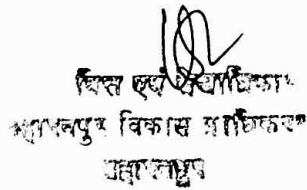 वित्त एवं लेखाधिकारी
सहारनपुर विकास प्राधिकरण
सहारनपुर